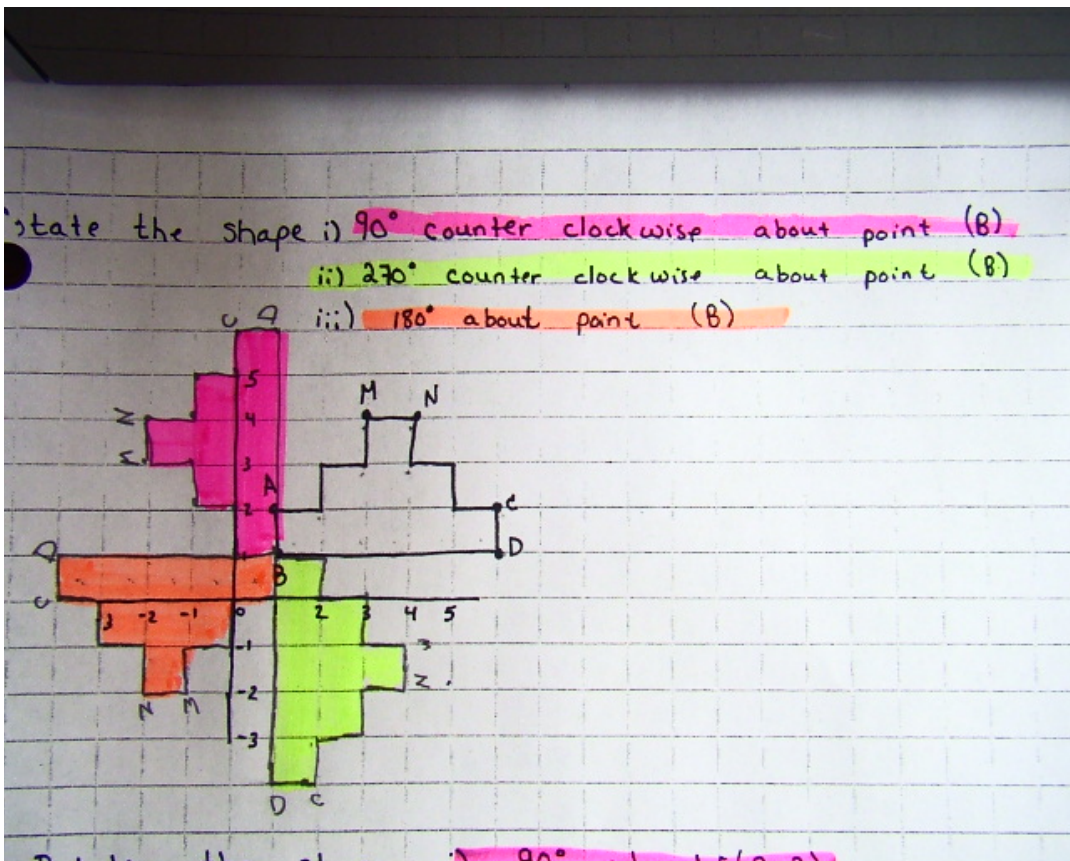 tate the shape i) 90° counter clockwise about point (B)
ii) 270° counter clockwise about point (B)
iii) 180° about point (B)
C D
5
4
3
2
1
M N
N
M
A
C
D
B
D
C
-3 -2 -1 0 2 3 4 5
-1
-2
-3
M
N
N M
D C
90°